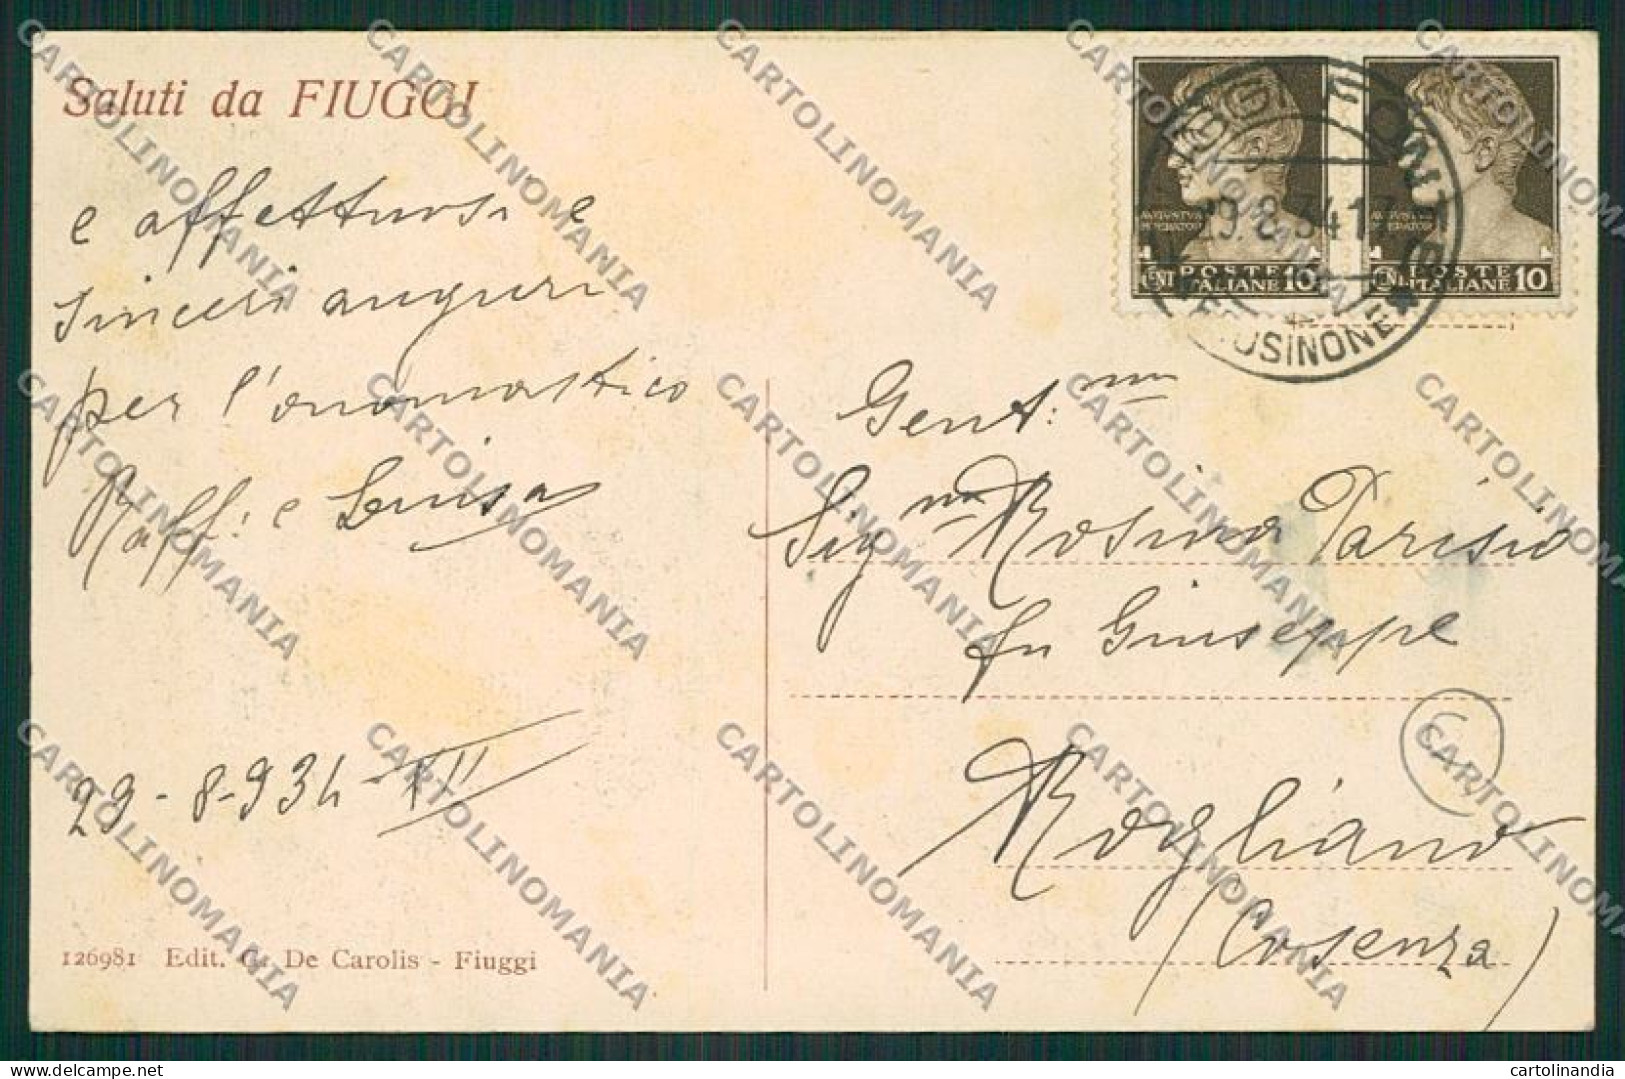 Saluti da FIUGGI
e affettuosi e
sinceri auguri
per l'onomastico
Raff: e Luisa
29-8-934-XII
126981 Edit. C. De Carolis - Fiuggi
AVGVSTVS
IMPERATOR
CENT POSTE ITALIANE 10
AVGVSTVS
IMPERATOR
CENT POSTE ITALIANE 10
FIUGGI FONTE
29.8.34.17
FROSINONE
Gent:ma
Sigra Rosina Parisio
fu Giuseppe
Rogliano
(Cosenza)
CARTOLINOMANIA
cartolinandia